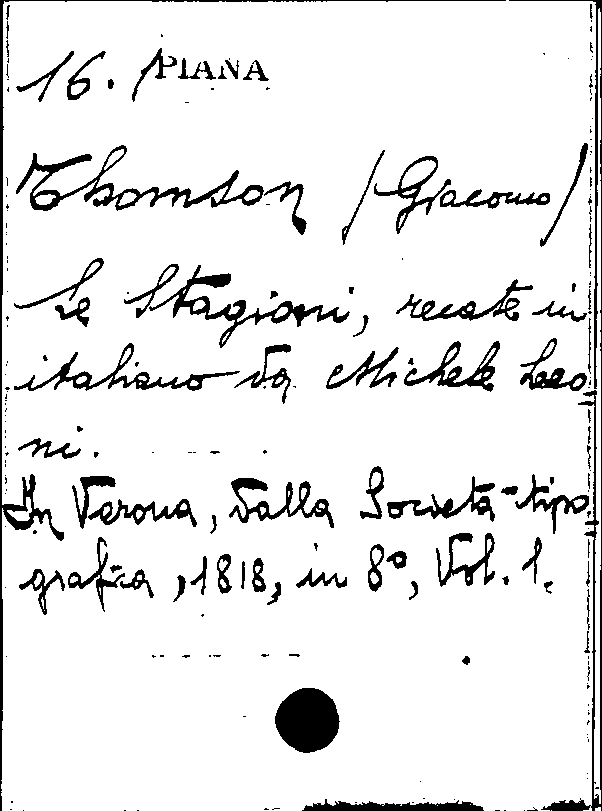 16. / PIANA
Thomson /Giacomo/
Le Stagioni, recate in
italiano da Michele Leo=
ni.
In Verona, dalla Società tipo=
grafica, 1818, in 8º, Vol. 1.